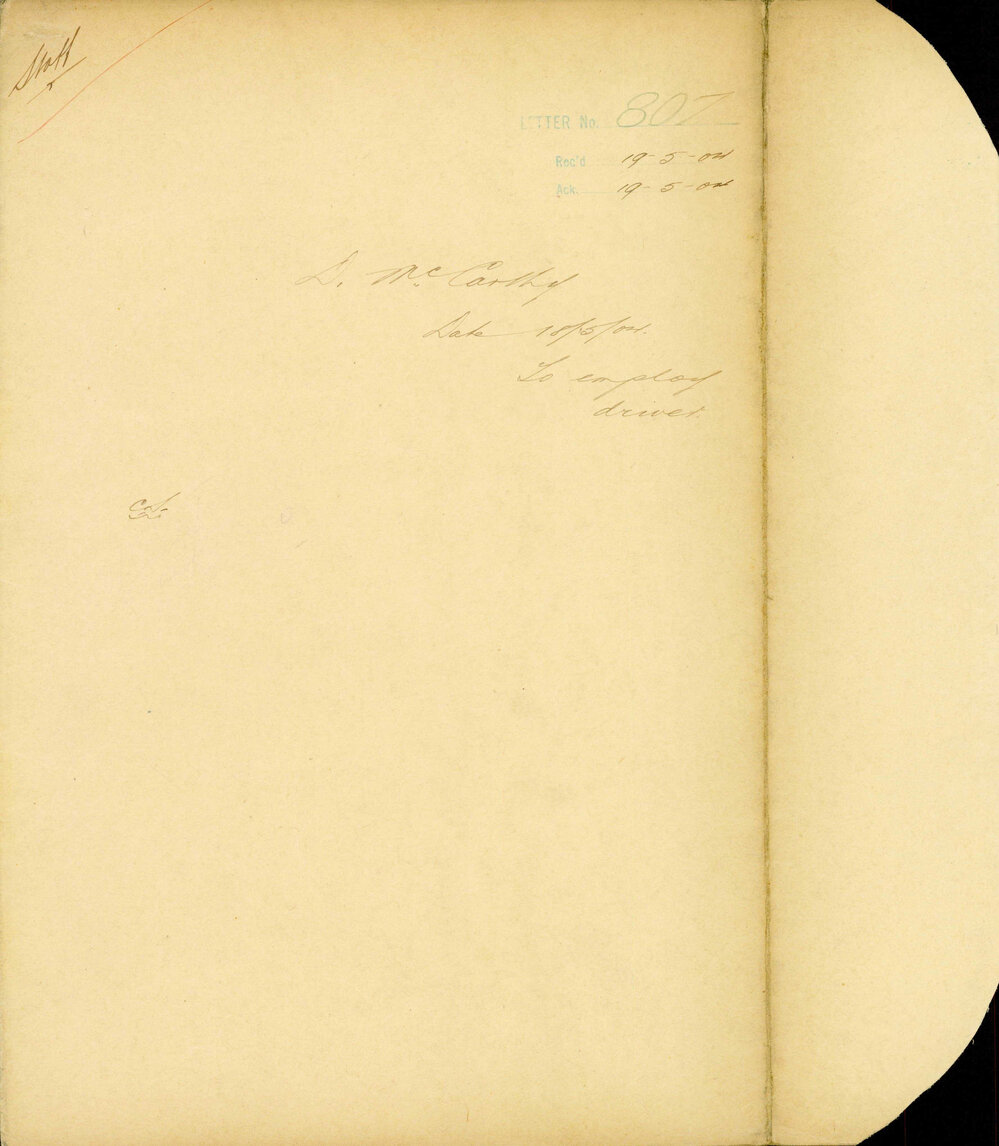 Staff
LETTER No. 807
Rec'd 19-5-04
Ack. 19-5-04
D. McCarthy
Date 18/5/04.
To employ
driver.